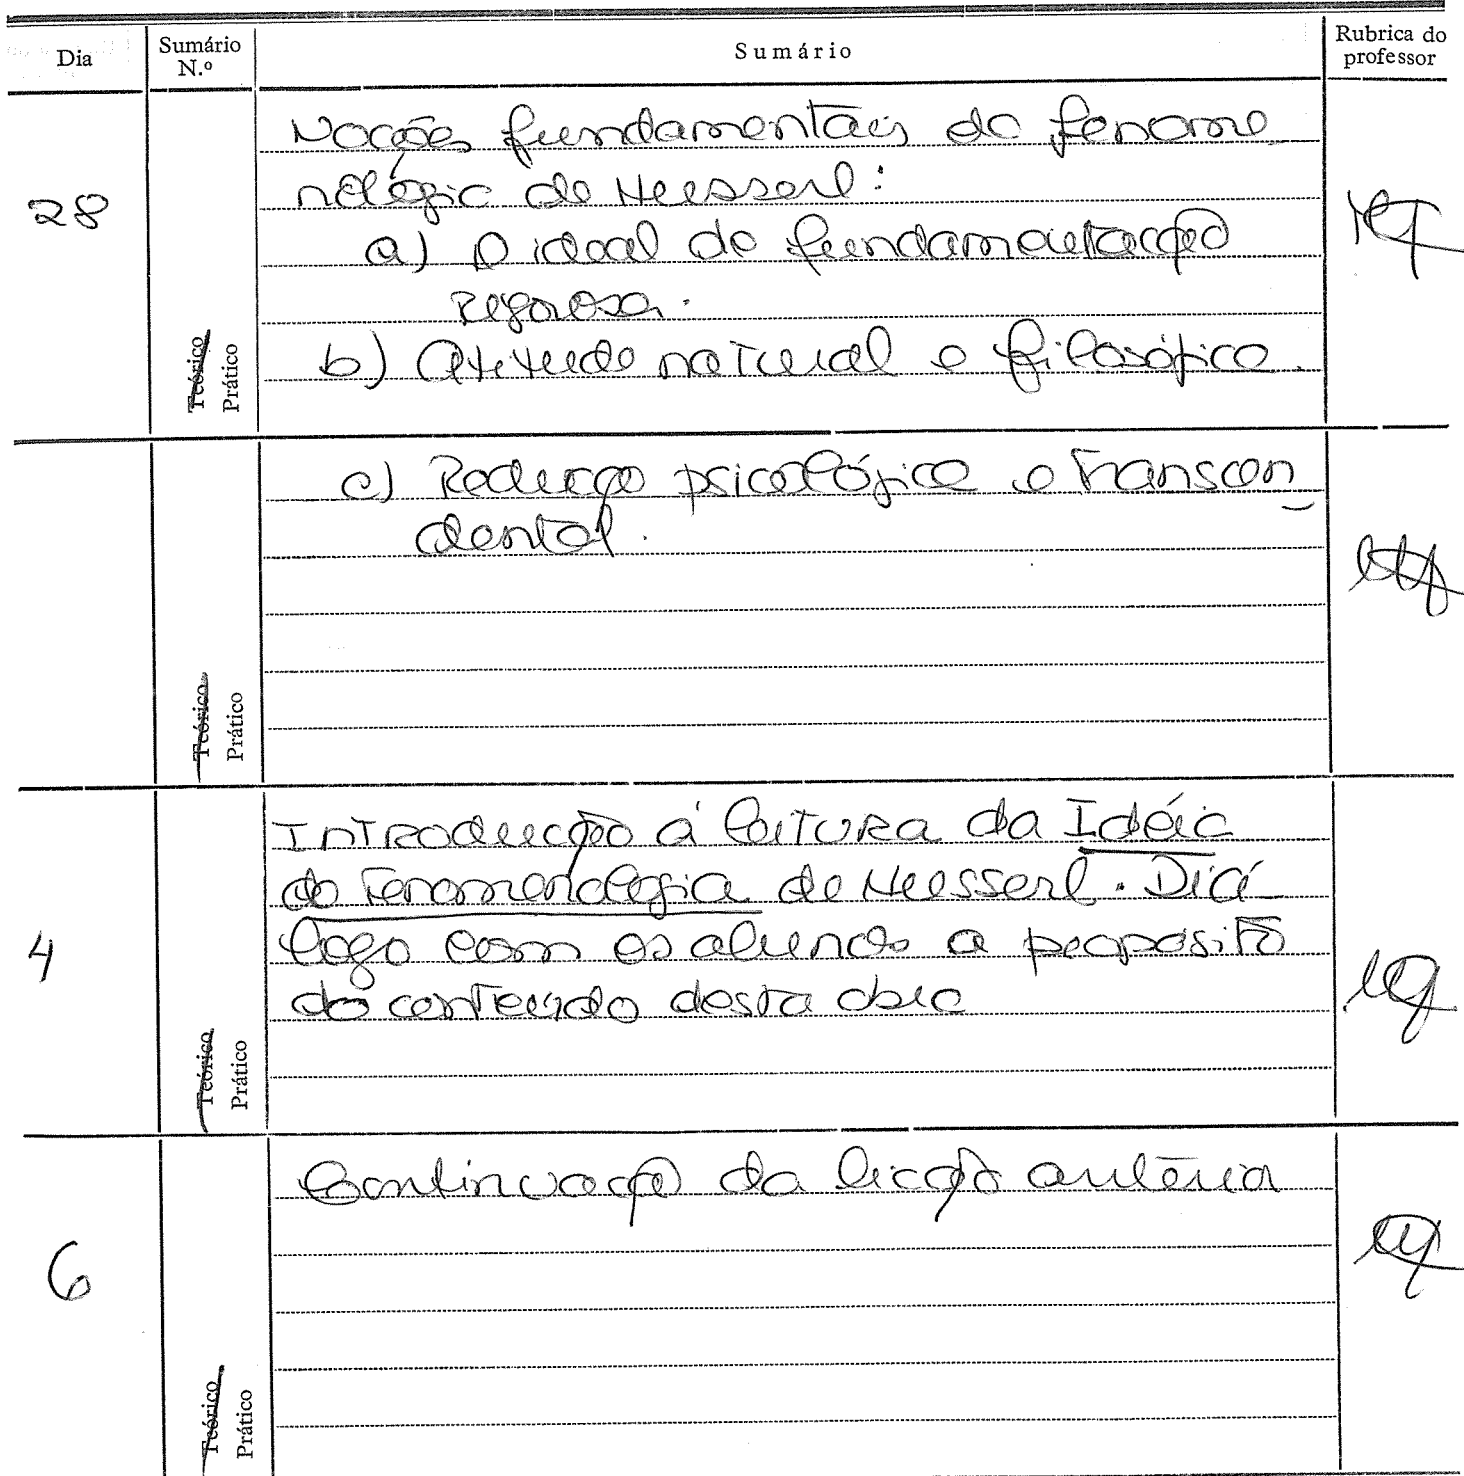 Dia
Sumário
N.º
Sumário
Rubrica do
professor
28
Noções fundamentais da fenome
nologia de Husserl:
a) O ideal de fundamentação
rigorosa.
b) Atitude natural e filosófica.
Teórico
Prático
c) Redução psicológica e transcen_
dental.
Teórico
Prático
4
Introdução á leitura da Idéia
da Fenomenologia de Husserl. Diá-
logo com os alunos a propósito
do conteúdo desta obra
Teórico
Prático
6
Continuação da lição anterior
Teórico
Prático